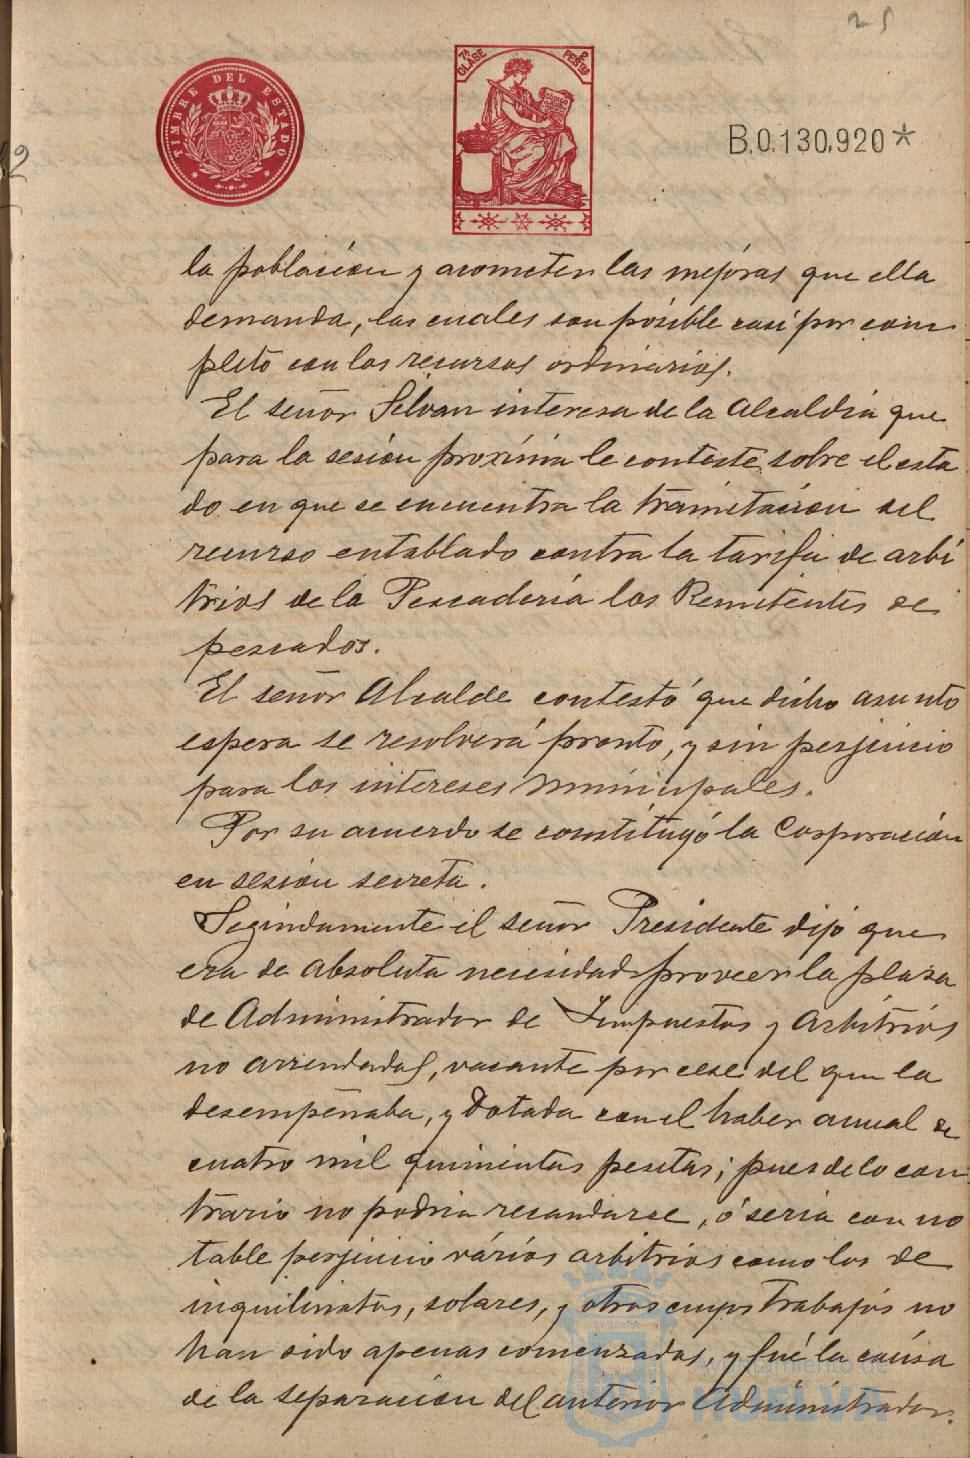 25
TIMBRE DEL ESTADO
7ª CLASE
2 PESETAS
B.0.130,920*
la población y acometer las mejóras que ella
demanda, las cuales son posible casi por com
pleto con los recursos ordinarios.
El señor Silvan interesa de la Alcaldia que
para la sesión proxíma le conteste sobre el esta
do en que se encuentra la tramitación del
recurso entablado contra la tarifa de arbi
trios de la Pescadería los Remitentes de
pescados.
El señor Alcalde contestó que dicho asunto
espera se resolverá pronto, y sin perjuicio
para los intereses municipales.
Por su acuerdo se constituyó la Corporación
en sesión secreta.
Segindamente el señor Presidente dijo que
era de absoluta necesidad proveer la plaza
de Administrador de Impuestos y Arbitrios
no arrendados, vacante por cese del que la
desempeñaba, y dotada con el haber anual de
cuatro mil quinientas pesetas; pues de lo con
trario no podria recaudarse, ó seria con no
table perjuicio vários arbitrios como los de
inquilinatos, solares, y otros cuyos trabajos no
han sido apenas comenzados, y fué la causa
de la separacion del anterior Administrador.
Ayuntamiento de
HUELVA